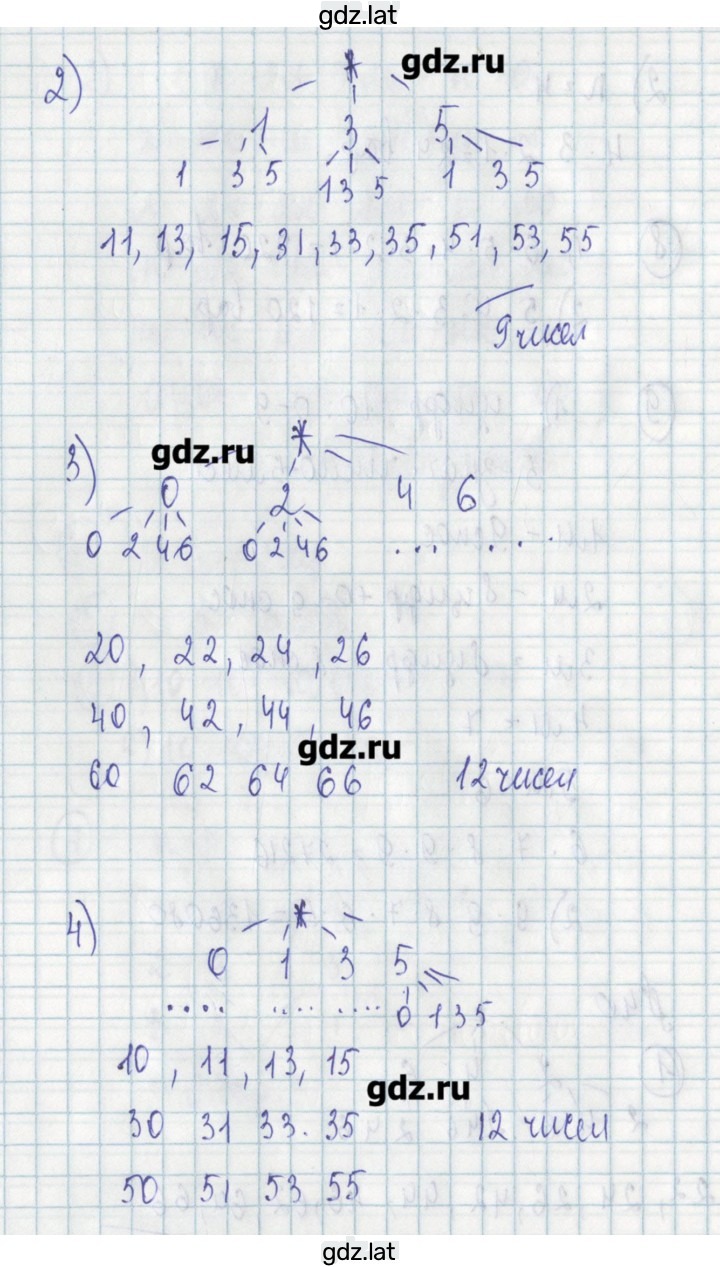 gdz.lat
2) * gdz.ru
1 3 5
1 3 5 1 3 5 1 3 5
11, 13, 15, 31, 33, 35, 51, 53, 55
9 чисел
3) gdz.ru *
0 2 4 6
0 2 4 6 0 2 4 6 ... ...
20, 22, 24, 26
40, 42, 44, 46
gdz.ru
60 62 64 66 12 чисел
4) *
0 1 3 5
.... .... .... 0 1 3 5
10, 11, 13, 15
gdz.ru
30 31 33. 35 12 чисел
50 51 53 55
gdz.lat